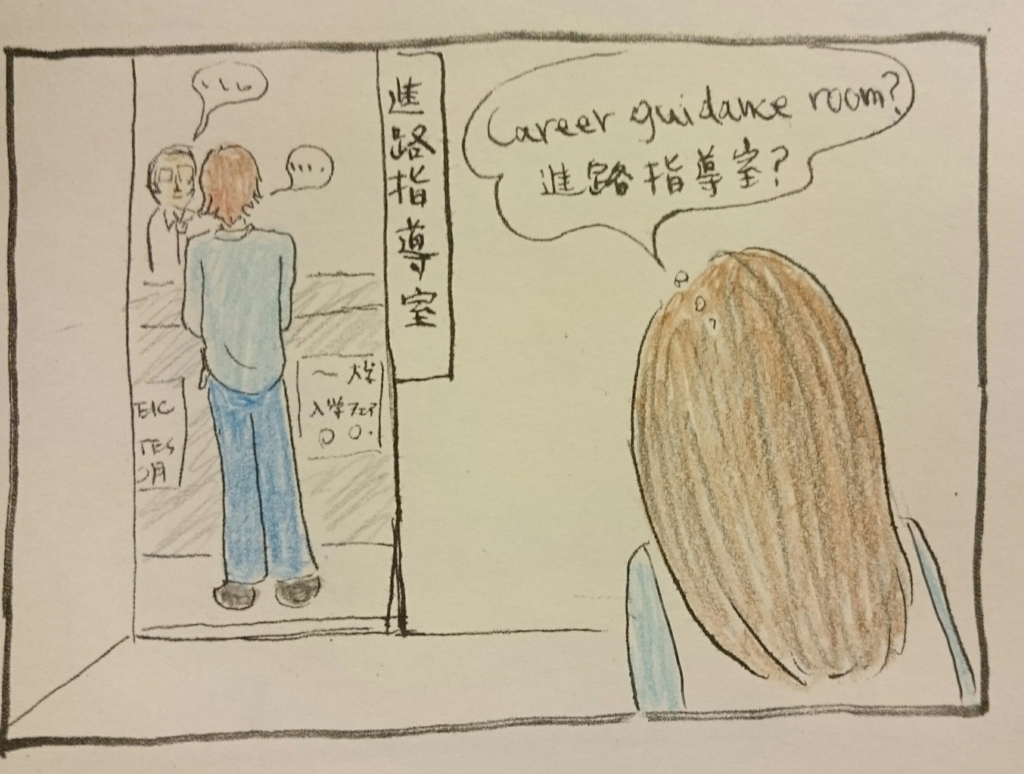 Career guidance room?
進路指導室?
進路指導室
....
....
〜大学
入学フェア
〇〇.
EIC
TES
〇月